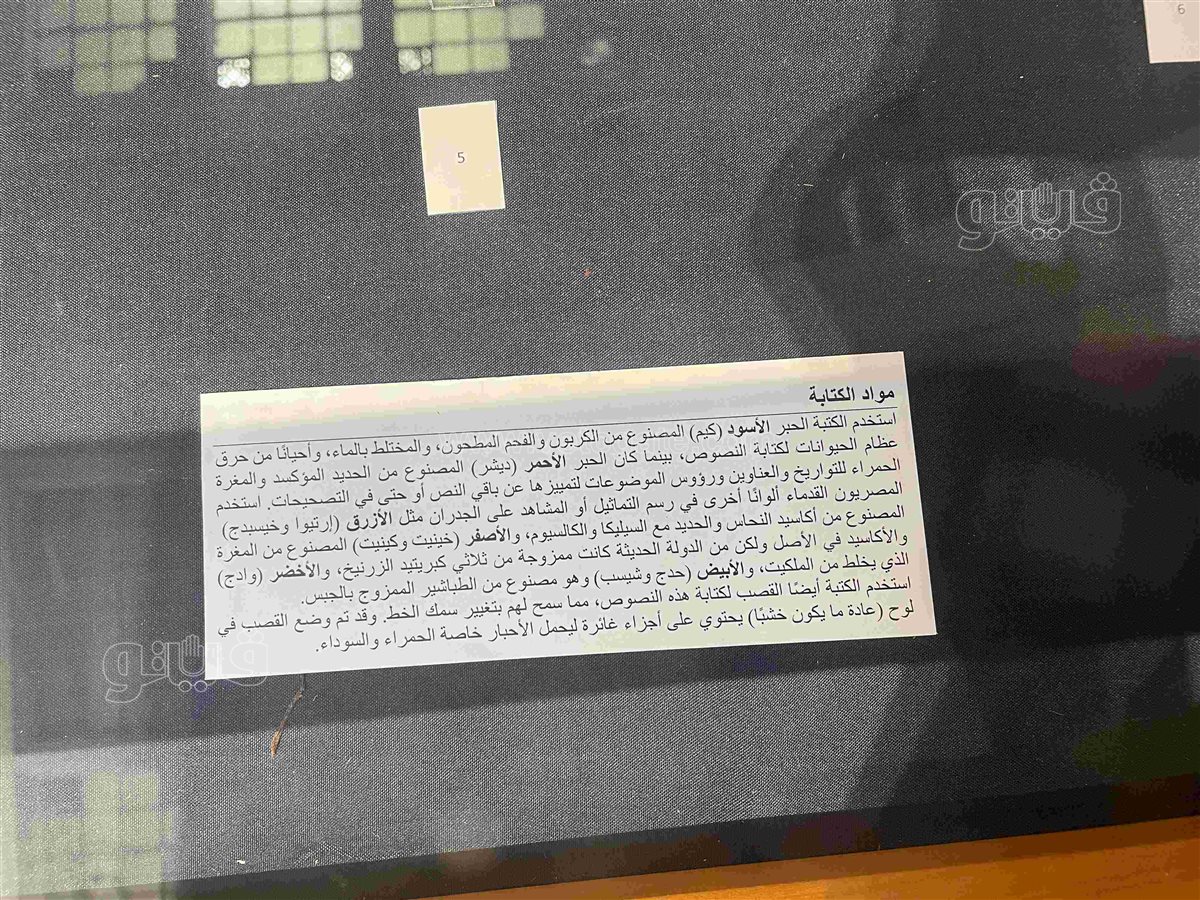 6
5
فيتو
مواد الكتابة
استخدم الكتبة الحبر الأسود (كيم) المصنوع من الكربون والفحم المطحون، والمختلط بالماء، وأحيانًا من حرق
عظام الحيوانات لكتابة النصوص، بينما كان الحبر الأحمر (ديشر) المصنوع من الحديد المؤكسد والمغرة
الحمراء للتواريخ والعناوين ورؤوس الموضوعات لتمييزها عن باقي النص أو حتى في التصحيحات. استخدم
المصريون القدماء ألوانًا أخرى في رسم التماثيل أو المشاهد على الجدران مثل الأزرق (إرتيوا وخيسبدج)
المصنوع من أكاسيد النحاس والحديد مع السيليكا والكالسيوم، والأصفر (خينيت وكينيت) المصنوع من المغرة
والأكاسيد في الأصل ولكن من الدولة الحديثة كانت ممزوجة من ثلاثي كبريتيد الزرنيخ، والأخضر (وادج)
الذي يخلط من الملكيت، والأبيض (حدج وشيسب) وهو مصنوع من الطباشير الممزوج بالجبس.
استخدم الكتبة أيضًا القصب لكتابة هذه النصوص، مما سمح لهم بتغيير سمك الخط. وقد تم وضع القصب في
لوح (عادة ما يكون خشبًا) يحتوي على أجزاء غائرة ليحمل الأحبار خاصة الحمراء والسوداء.
فيتو